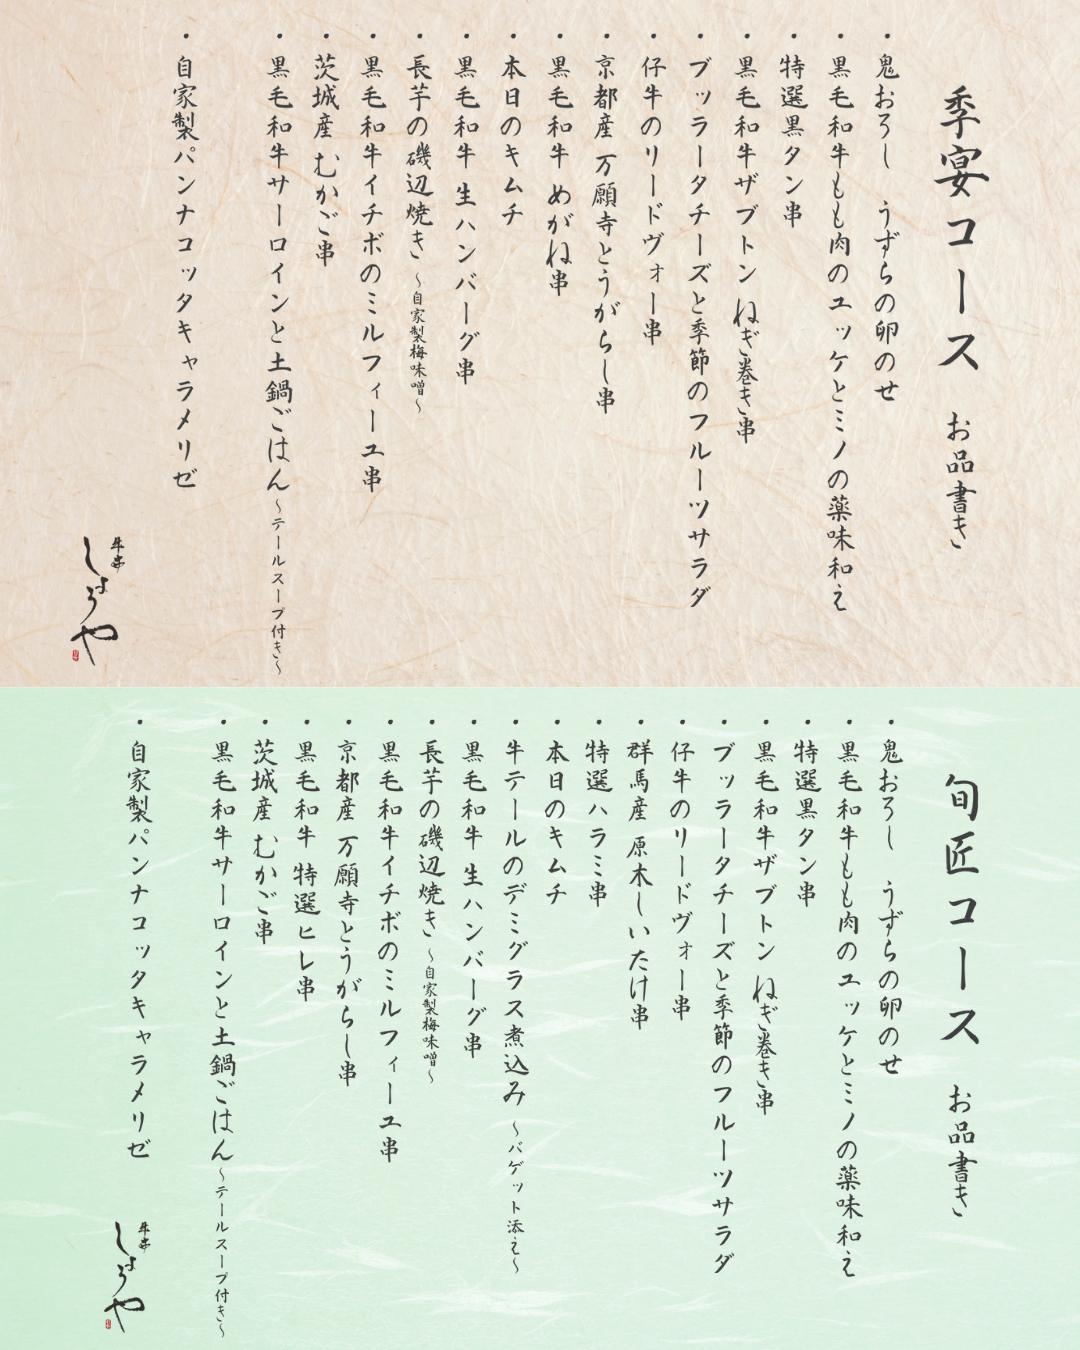 季宴コース お品書き
・鬼おろし うずらの卵のせ
・黒毛和牛もも肉のユッケとミノの薬味和え
・特選黒タン串
・黒毛和牛ザブトン ねぎ巻き串
・ブッラータチーズと季節のフルーツサラダ
・仔牛のリードヴォー串
・京都産 万願寺とうがらし串
・黒毛和牛 めがね串
・本日のキムチ
・黒毛和牛 生ハンバーグ串
・長芋の磯辺焼き ~自家製梅味噌~
・黒毛和牛イチボのミルフィーユ串
・茨城産 むかご串
・黒毛和牛サーロインと土鍋ごはん~テールスープ付き~
・自家製パンナコッタキャラメリゼ
牛串
しょうや
旬匠コース お品書き
・鬼おろし うずらの卵のせ
・黒毛和牛もも肉のユッケとミノの薬味和え
・特選黒タン串
・黒毛和牛ザブトン ねぎ巻き串
・ブッラータチーズと季節のフルーツサラダ
・仔牛のリードヴォー串
・群馬産 原木しいたけ串
・特選ハラミ串
・本日のキムチ
・牛テールのデミグラス煮込み ~バゲット添え~
・黒毛和牛 生ハンバーグ串
・長芋の磯辺焼き ~自家製梅味噌~
・黒毛和牛イチボのミルフィーユ串
・京都産 万願寺とうがらし串
・黒毛和牛 特選ヒレ串
・茨城産 むかご串
・黒毛和牛サーロインと土鍋ごはん~テールスープ付き~
・自家製パンナコッタキャラメリゼ
牛串
しょうや